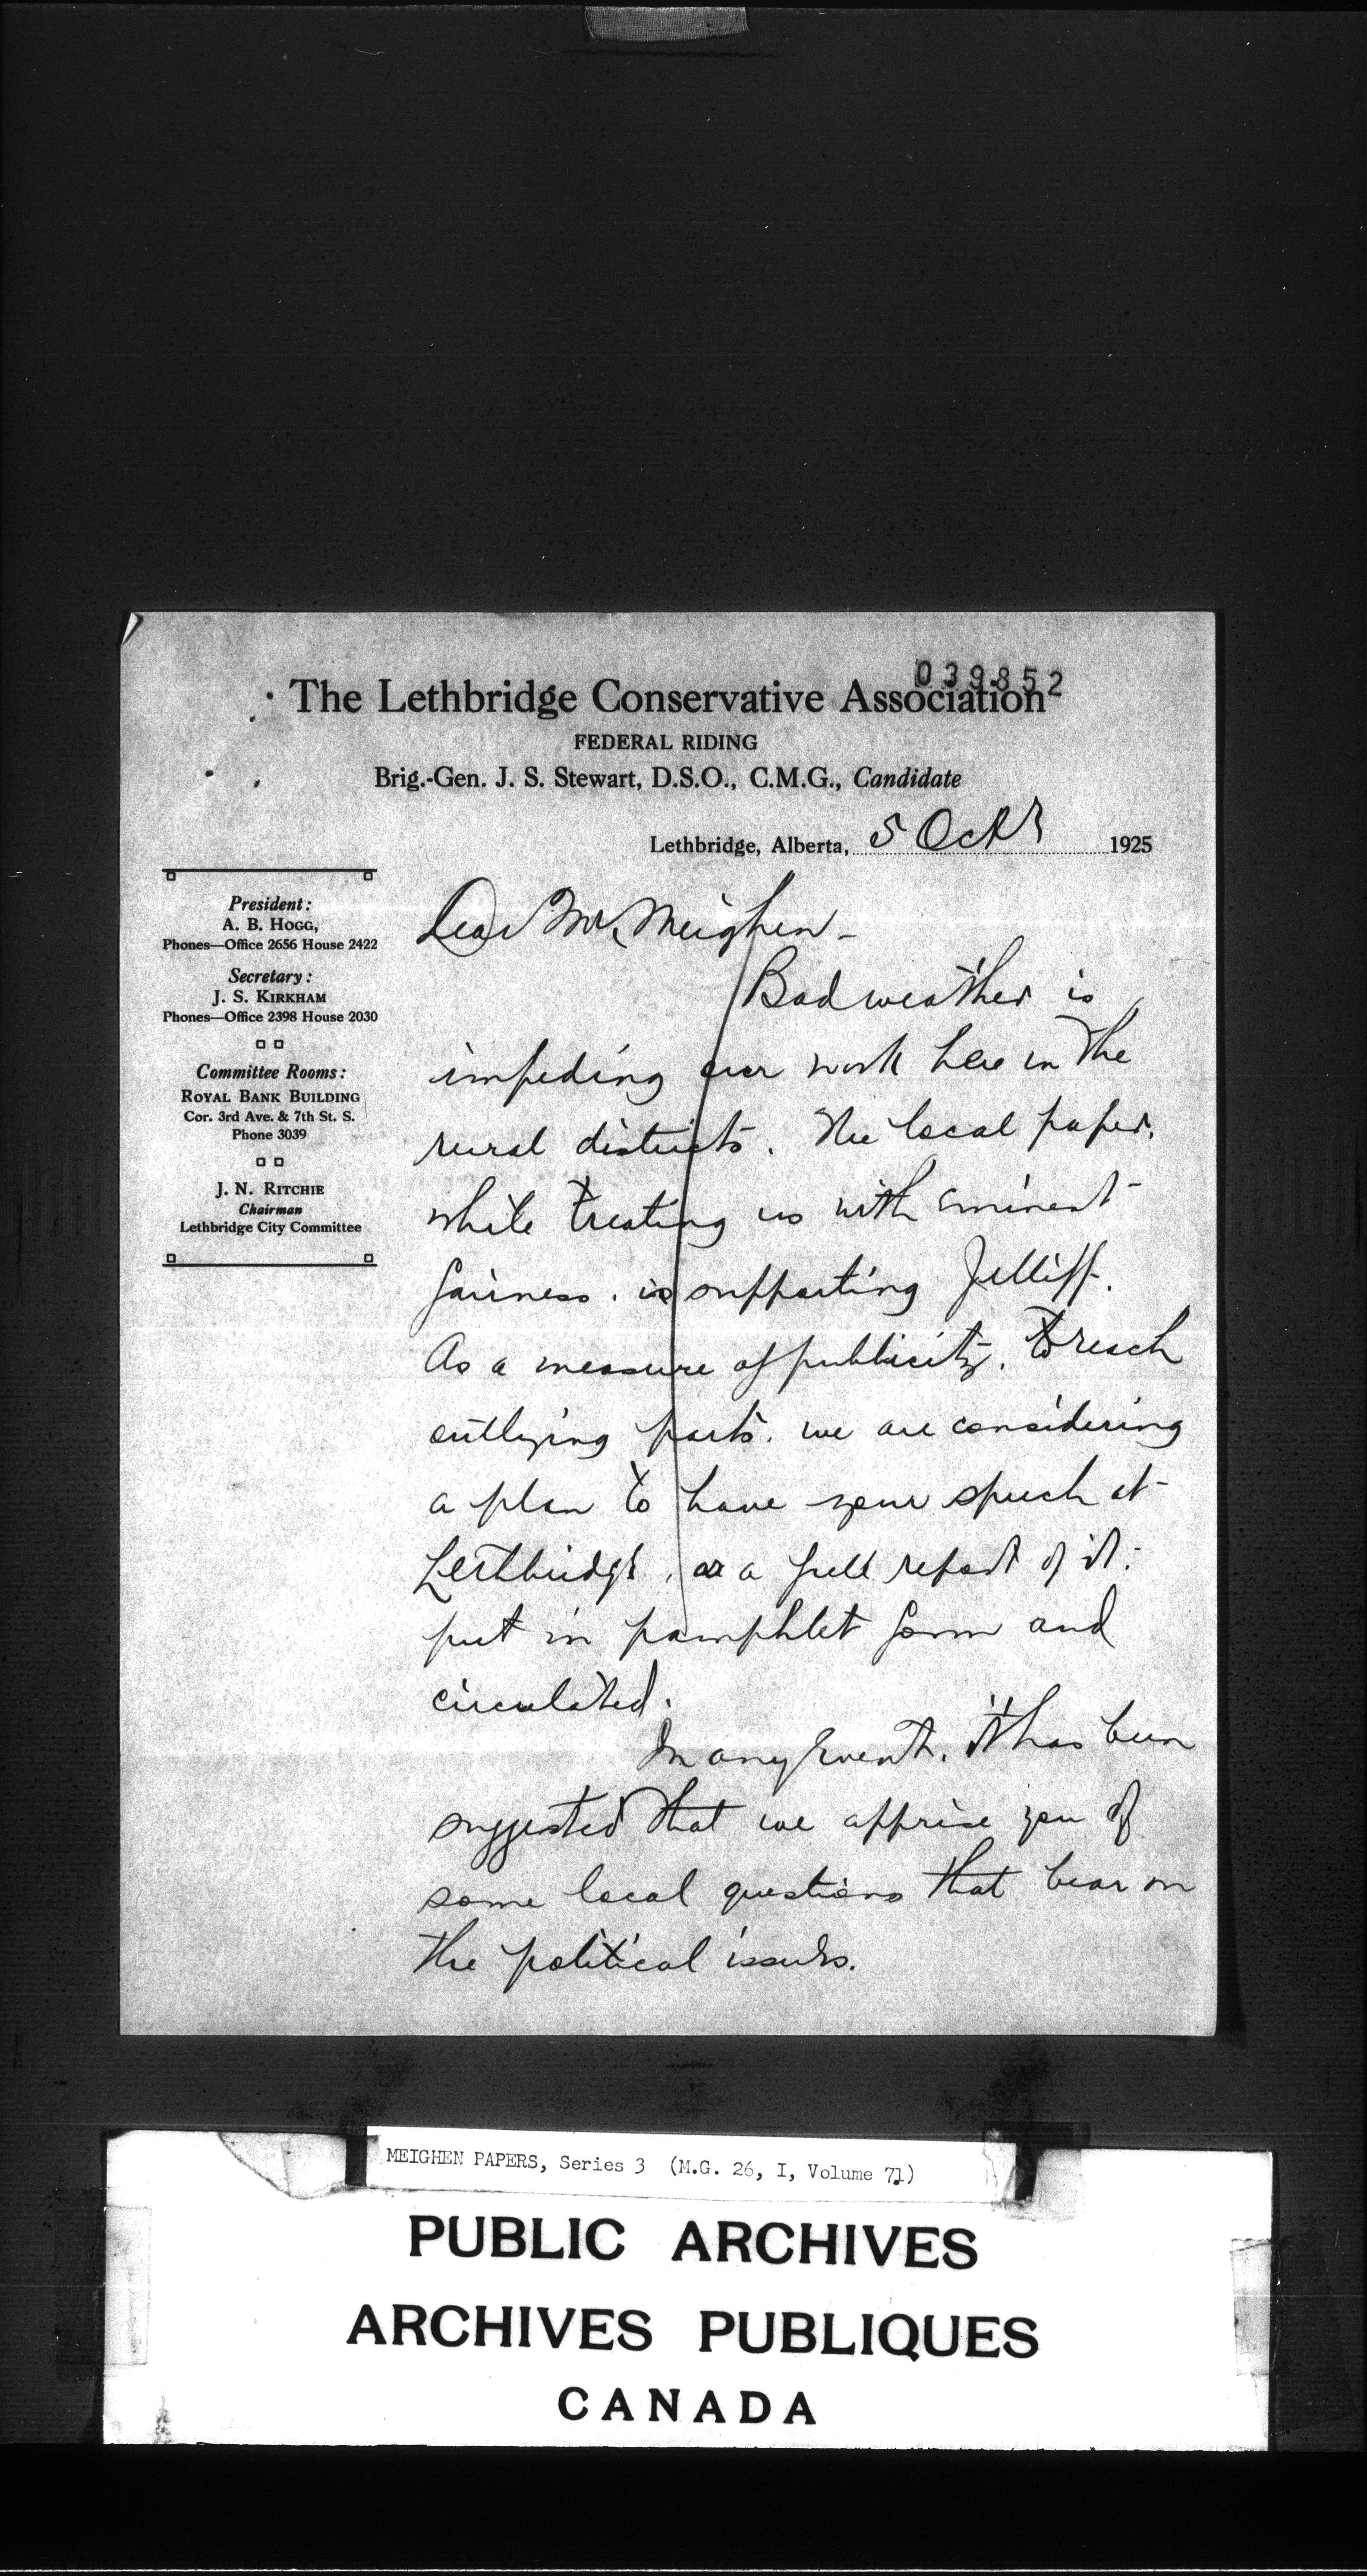 039852
The Lethbridge Conservative Association
FEDERAL RIDING
Brig.-Gen. J. S. Stewart, D.S.O., C.M.G., Candidate
Lethbridge, Alberta, 5 Octr 1925
President:
A. B. HOGG,
Phones—Office 2656 House 2422
Secretary:
J. S. KIRKHAM
Phones—Office 2398 House 2030
Committee Rooms:
ROYAL BANK BUILDING
Cor. 3rd Ave. & 7th St. S.
Phone 3039
J. N. RITCHIE
Chairman
Lethbridge City Committee
Dear Mr. Meighen -
Bad weather is
impeding our work here in the
rural districts. The local paper,
while treating us with eminent
fairness, is supporting Jelliff.
As a measure of publicity, to reach
outlying parts, we are considering
a plan to have your speech at
Lethbridge, or a full report of it,
put in pamphlet form and
circulated.
In any event, it has been
suggested that we apprise you of
some local questions that bear on
the political issues.
MEIGHEN PAPERS, Series 3 (M.G. 26, I, Volume 71)
PUBLIC ARCHIVES
ARCHIVES PUBLIQUES
CANADA